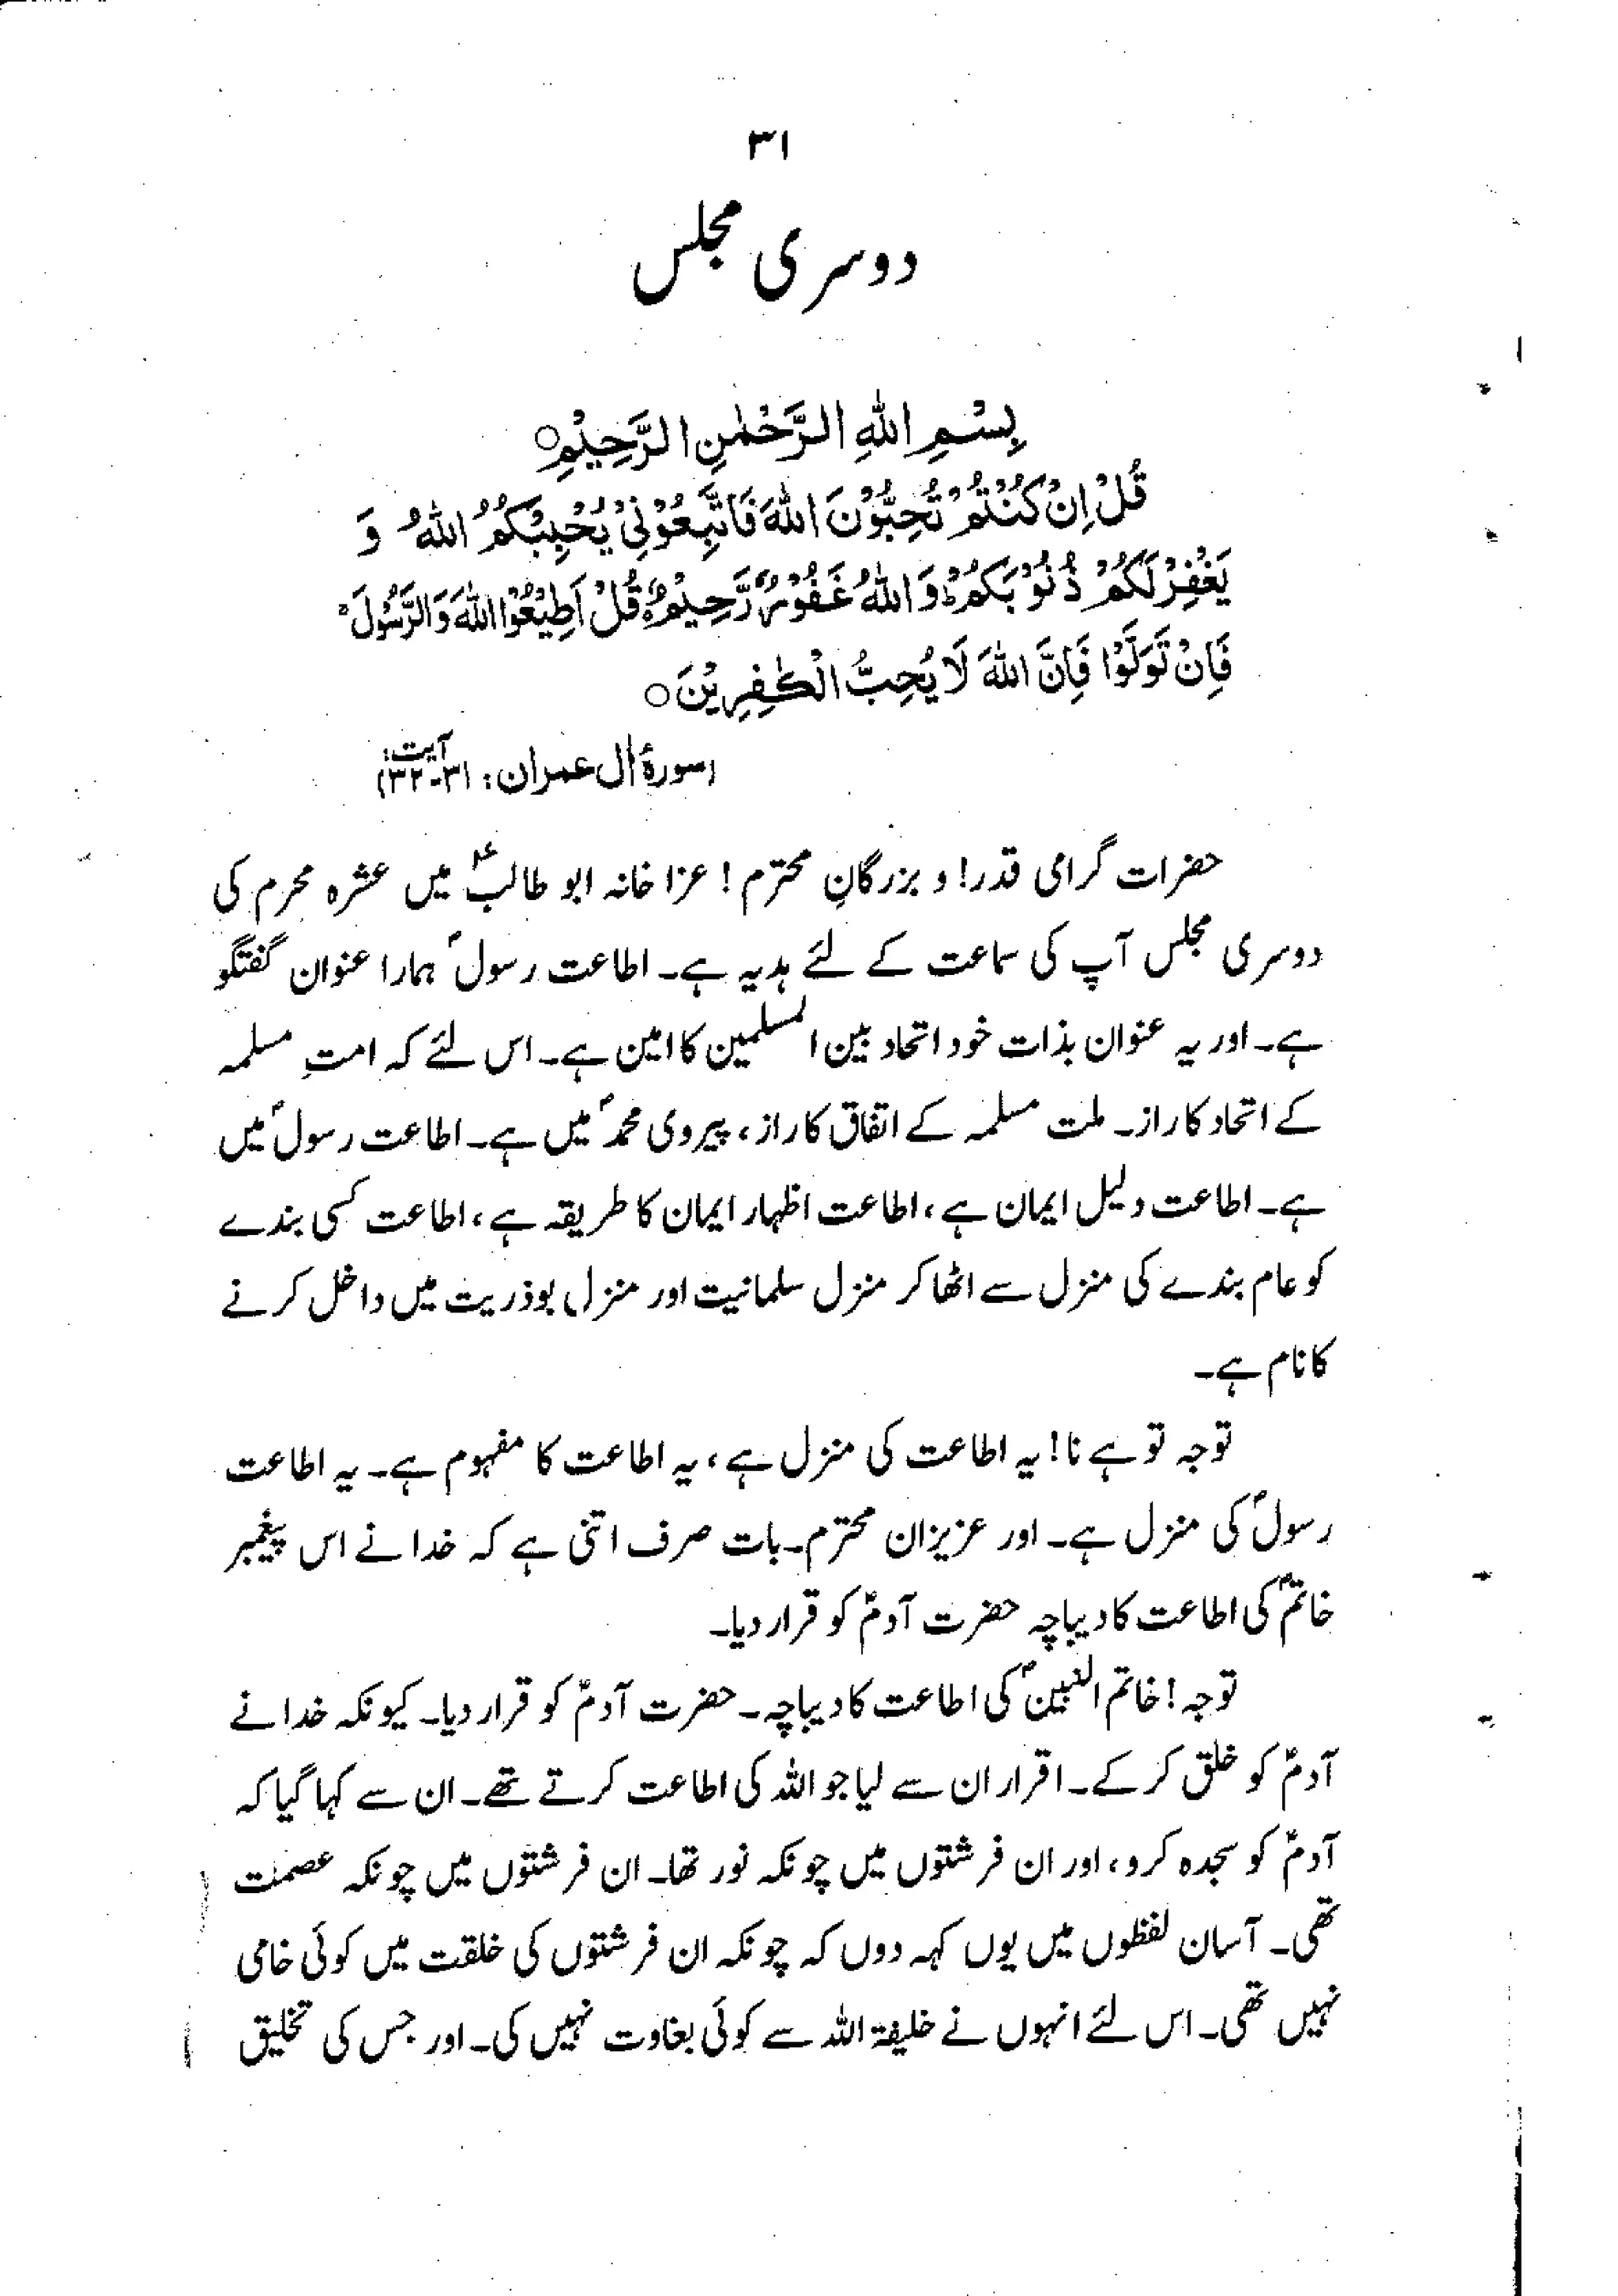 ۳۱
دوسری مجلس
بِسْمِ اللهِ الرَّحْمٰنِ الرَّحِيْمِ○
قُلْ اِنْ كُنْتُمْ تُحِبُّوْنَ اللهَ فَاتَّبِعُوْنِيْ يُحْبِبْكُمُ اللهُ وَ
يَغْفِرْ لَكُمْ ذُنُوْبَكُمْ ؕ وَاللهُ غَفُوْرٌ رَّحِيْمٌ○ قُلْ اَطِيْعُوا اللهَ وَالرَّسُوْلَ ۚ
فَاِنْ تَوَلَّوْا فَاِنَّ اللهَ لَا يُحِبُّ الْكٰفِرِيْنَ○
(سورۂ اٰل عمران: آیت: ۳۱-۳۲)
حضرات گرامی قدر! و بزرگانِ محترم! عزا خانہ ابو طالبؑ میں عشرہ محرم کی
دوسری مجلس آپ کی سماعت کے لئے ہدیہ ہے۔ اطاعت رسولؐ ہمارا عنوان گفتگو
ہے۔ اور یہ عنوان بذات خود اتحاد بین المسلمین کا امین ہے۔ اس لئے کہ امتِ مسلمہ
کے اتحاد کا راز۔ ملت مسلمہ کے اتفاق کا راز، پیروی محمدؐ میں ہے۔ اطاعت رسولؐ میں
ہے۔ اطاعت دلیل ایمان ہے، اطاعت اظہار ایمان کا طریقہ ہے، اطاعت کسی بندے
کو عام بندے کی منزل سے اٹھا کر منزل سلمانیت اور منزل بوذریت میں داخل کرنے
کا نام ہے۔
توجہ تو ہے نا! یہ اطاعت کی منزل ہے، یہ اطاعت کا مفہوم ہے۔ یہ اطاعت
رسولؐ کی منزل ہے۔ اور عزیزان محترم۔ بات صرف اتنی ہے کہ خدا نے اس پیغمبر
خاتمؐ کی اطاعت کا دیباچہ حضرت آدمؑ کو قرار دیا۔
توجہ! خاتم النبینؐ کی اطاعت کا دیباچہ۔ حضرت آدمؑ کو قرار دیا۔ کیونکہ خدا نے
آدمؑ کو خلق کر کے۔ اقرار ان سے لیا جو اللہ کی اطاعت کرتے تھے۔ ان سے کہا گیا کہ
آدمؑ کو سجدہ کرو، اور ان فرشتوں میں چونکہ نور تھا۔ ان فرشتوں میں چونکہ عصمت
تھی۔ آسان لفظوں میں یوں کہہ دوں کہ چونکہ ان فرشتوں کی خلقت میں کوئی خامی
نہیں تھی۔ اس لئے انہوں نے خلیفۃ اللہ سے کوئی بغاوت نہیں کی۔ اور جس کی تخلیق